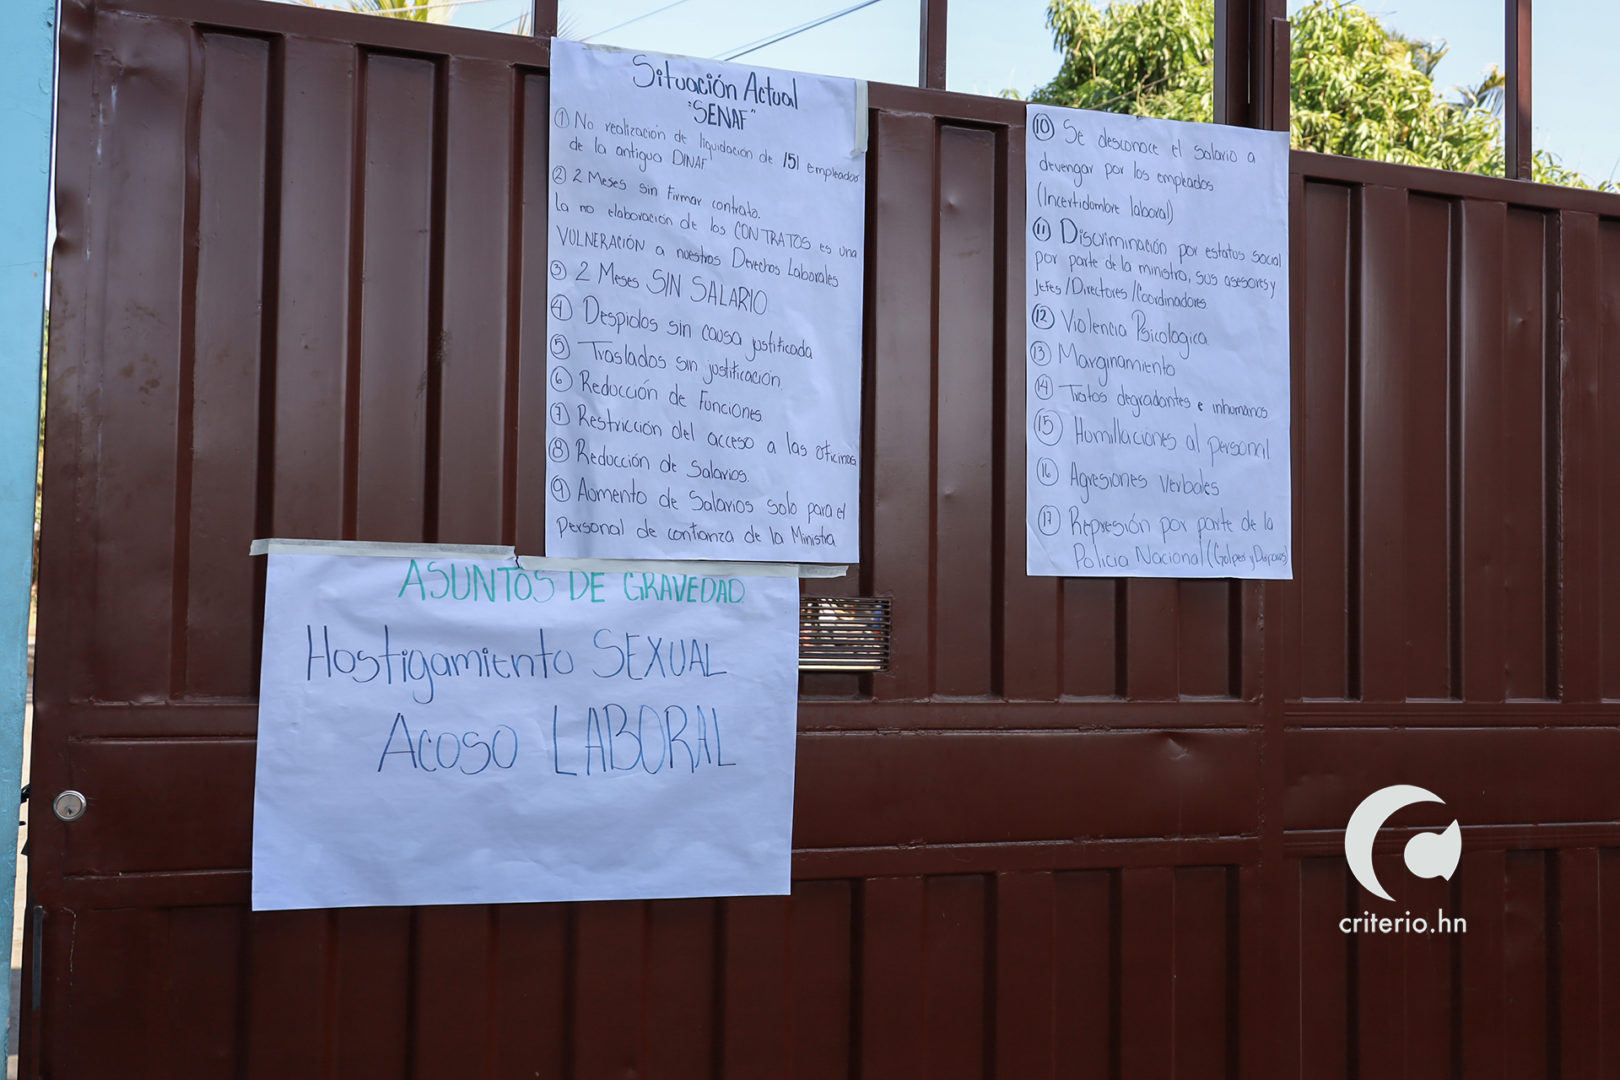 Situación Actual
"SENAF"
① No realización de liquidación de 151 empleados
de la antigua DINAF
② 2 Meses sin Firmar contrato.
La no elaboración de los CONTRATOS es una
VULNERACIÓN a nuestros Derechos Laborales
③ 2 Meses SIN SALARIO
④ Despidos sin causa justificada
⑤ Traslados sin justificación
⑥ Reducción de Funciones
⑦ Restricción del acceso a las oficinas
⑧ Reducción de Salarios.
⑨ Aumento de Salarios solo para el
personal de confianza de la Ministra
⑩ Se desconoce el salario a
devengar por los empleados
(Incertidumbre laboral)
⑪ Discriminación por estatus social
por parte de la ministra, sus asesores y
Jefes/Directores/Coordinadores
⑫ Violencia Psicologica
⑬ Marginamiento
⑭ Tratos degradantes e inhumanos
⑮ Humillaciones al personal
⑯ Agresiones verbales
⑰ Represión por parte de la
Policia Nacional (Golpes y Disparos)
ASUNTOS DE GRAVEDAD
Hostigamiento SEXUAL
Acoso LABORAL
criterio.hn